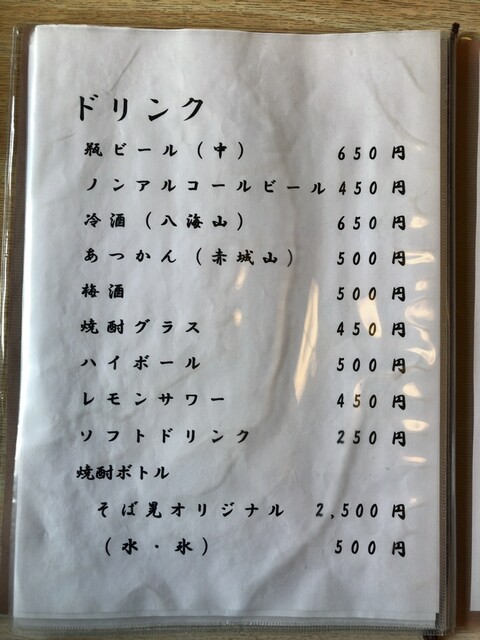 ドリンク
瓶ビール(中) 650円
ノンアルコールビール 450円
冷酒(八海山) 650円
あつかん(赤城山) 500円
梅酒 500円
焼酎グラス 450円
ハイボール 500円
レモンサワー 450円
ソフトドリンク 250円
焼酎ボトル
そば晃オリジナル 2,500円
(水・氷) 500円